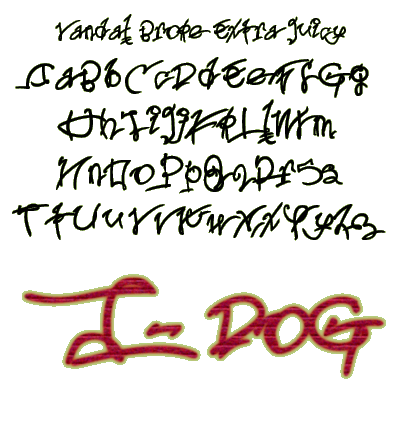 Vandal Broke Extra Juicy
AaBbCcDdEeFfGg
HhIiJjKkLlMm
NnOoPpQqRrSs
TtUuVvWwXxYyZz
I- DOG